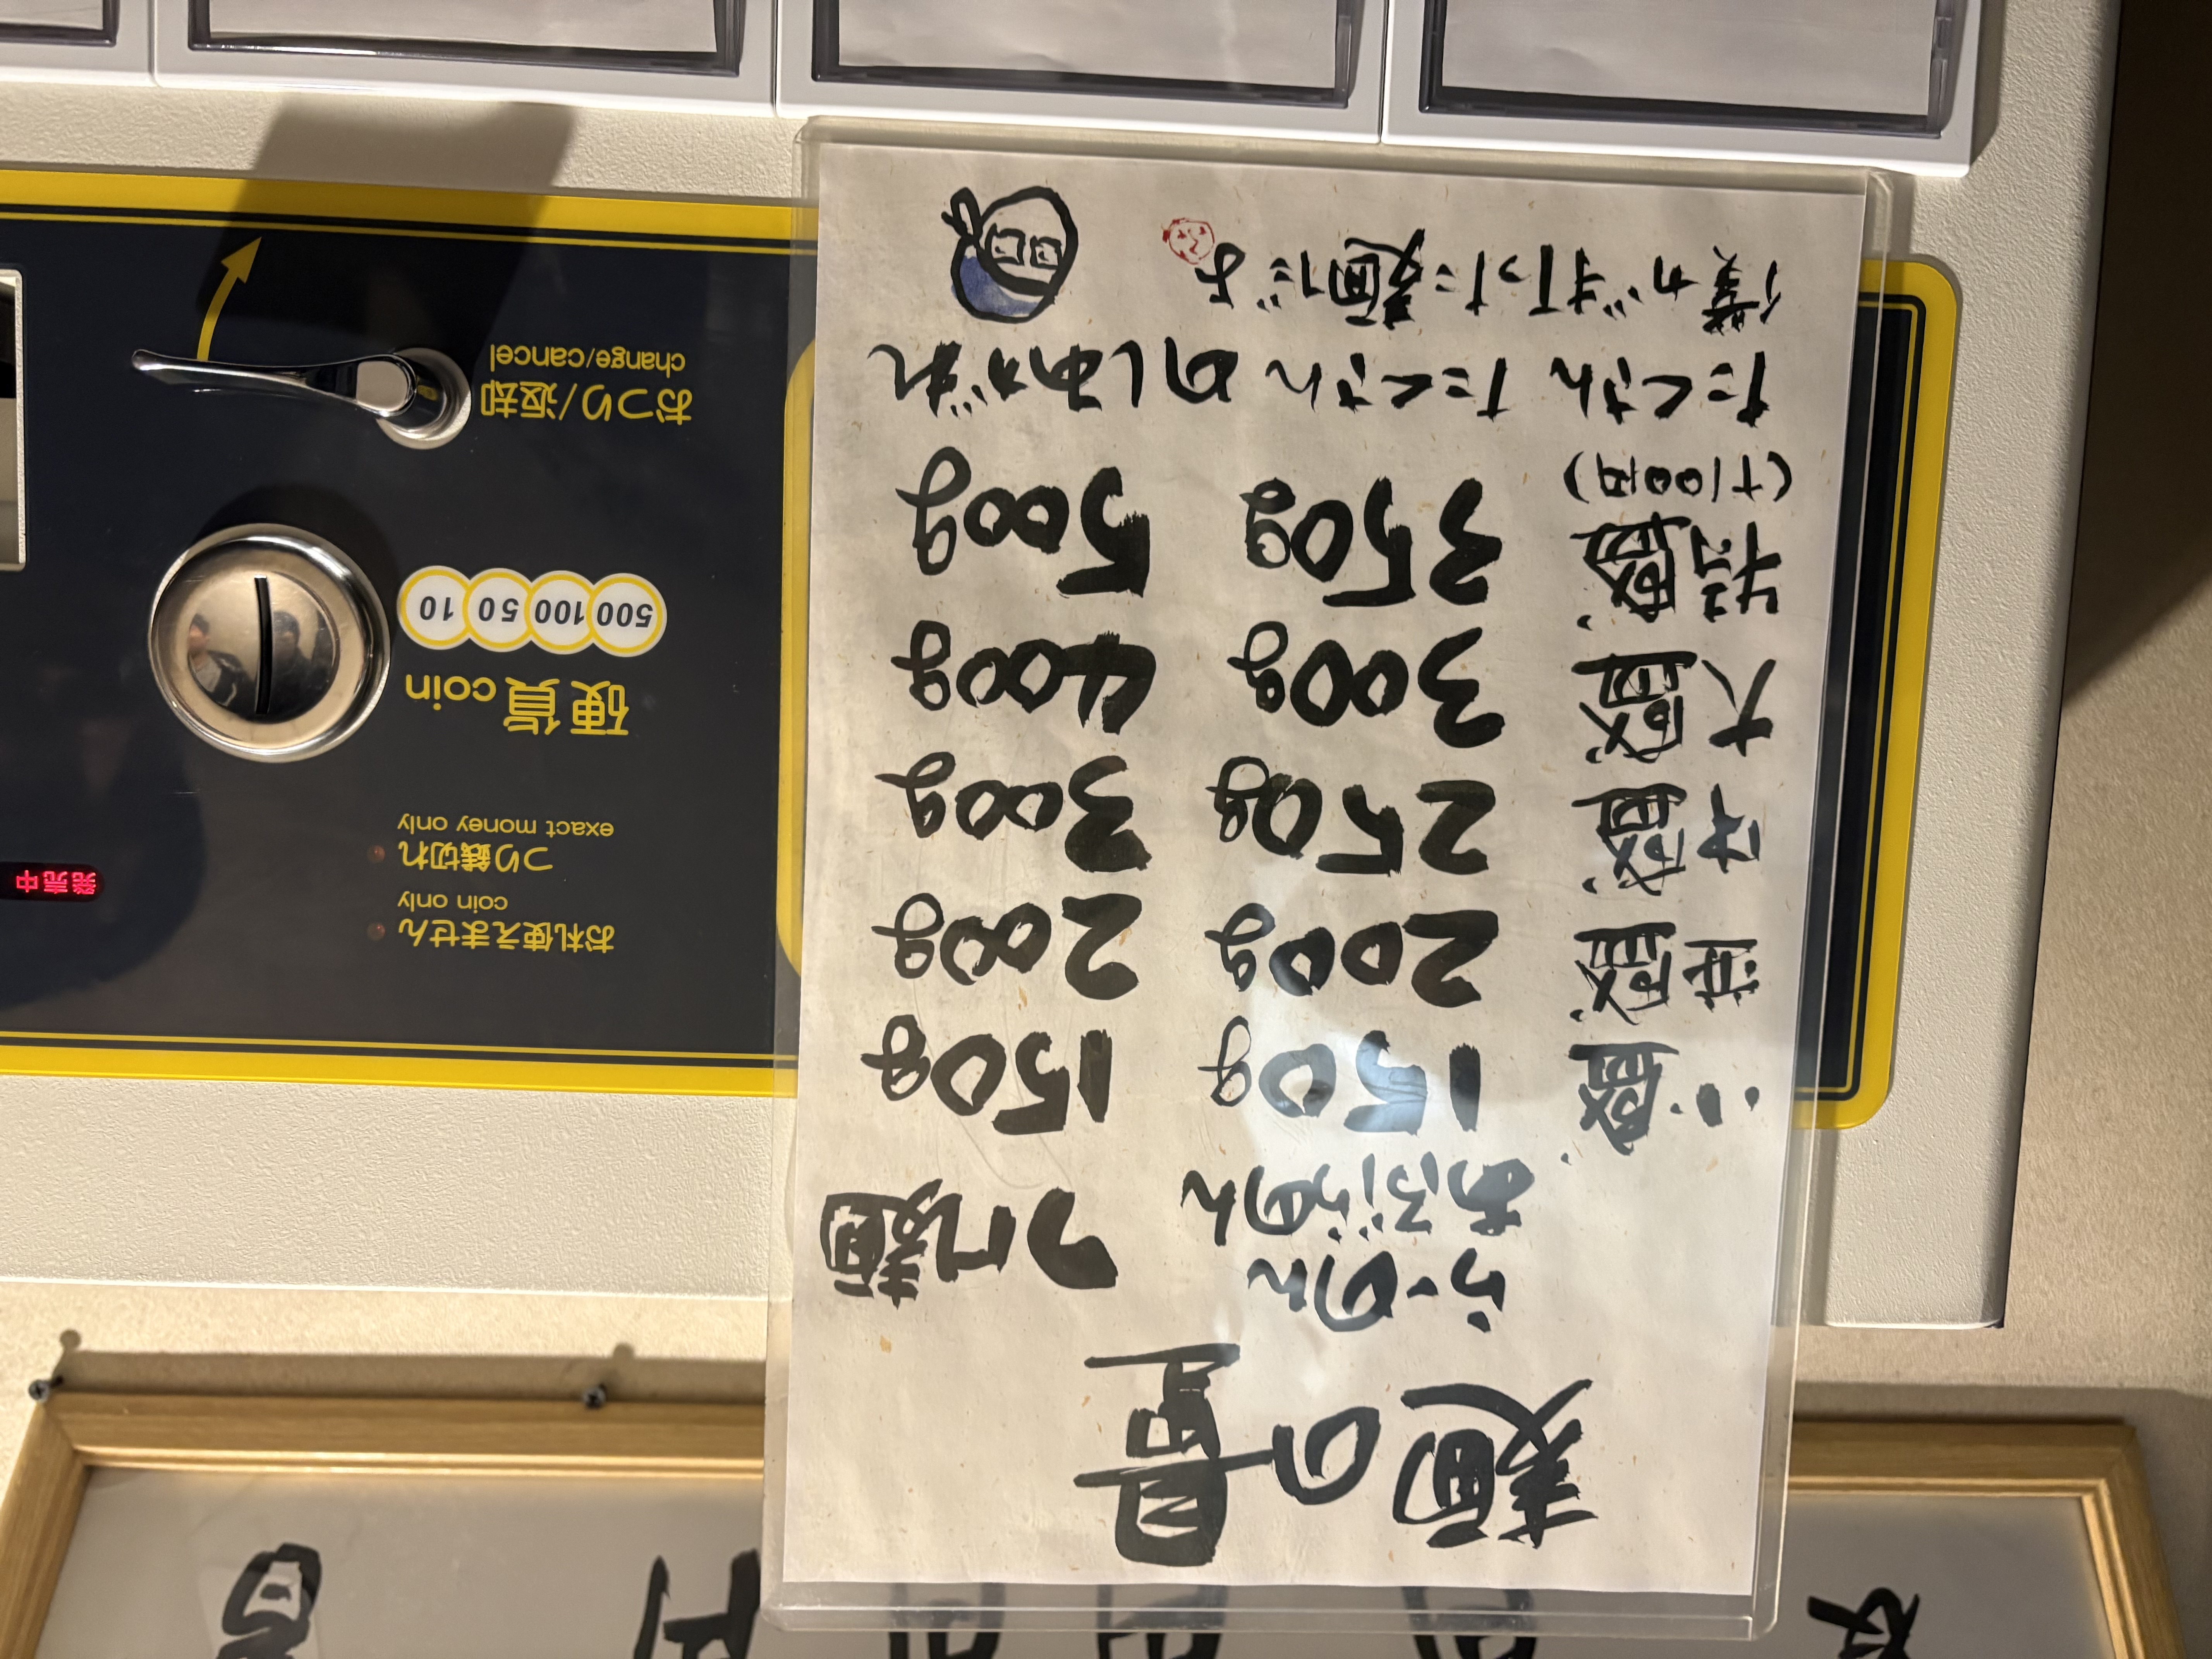 麺の量
らーめん
あぶらめん
つけ麺
小盛 150g 150g
並盛 200g 200g
中盛 250g 300g
大盛 300g 400g
特盛 350g 500g
(+100円)
たくさん たくさん めしあがれ
僕が打った麺だよ
お札使えません
coin only
つり銭切れ
exact money only
発売中
硬貨coin
500 100 50 10
おつり/返却
change/cancel